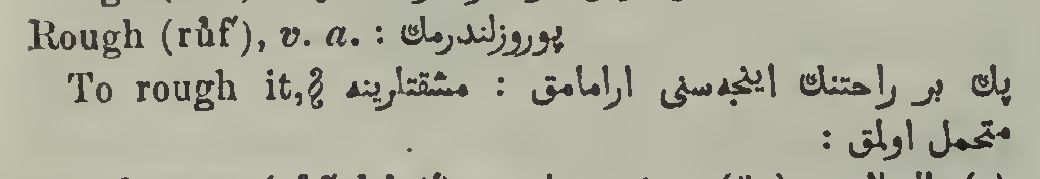 Rough (rŭf′), v. a. : پوروزلندرمك
To rough it, پك بر راحتنك اینجه‌سنی ارامامق : مشقتلرینه
متحمل اولمق :